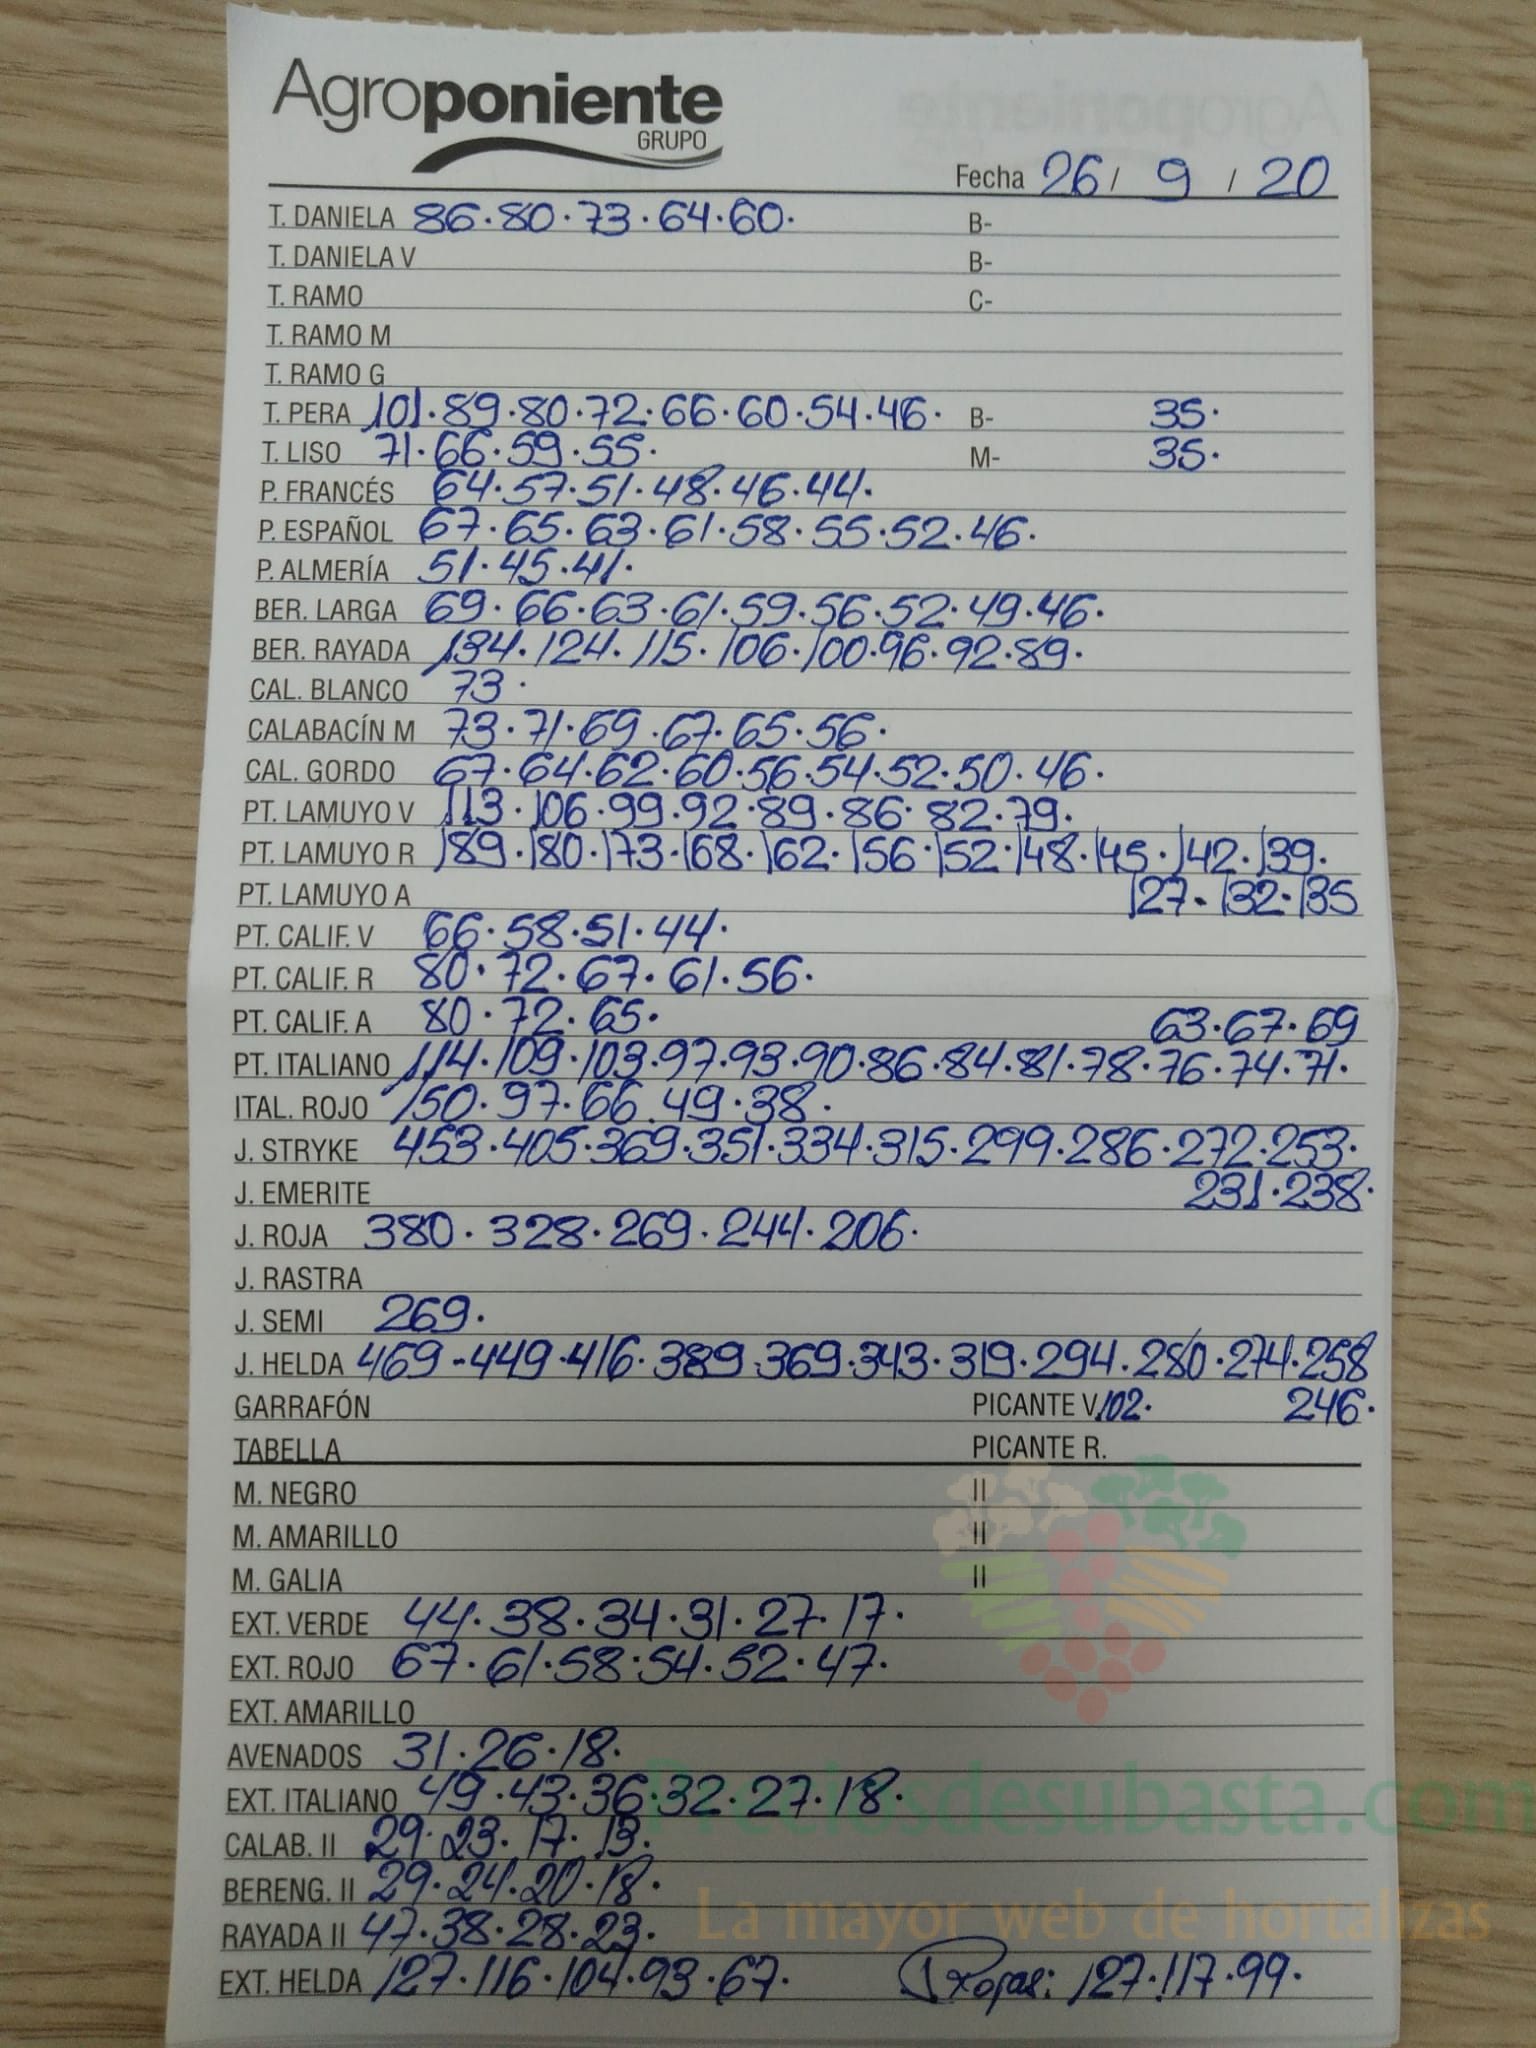 Agroponiente
GRUPO
Fecha 26 / 9 / 20
T. DANIELA 86·80·73·64·60· B-
T. DANIELA V B-
T. RAMO C-
T. RAMO M
T. RAMO G
T. PERA 101·89·80·72·66·60·54·46· B- 35·
T. LISO 71·66·59·55· M- 35·
P. FRANCÉS 64·57·51·48·46·44·
P. ESPAÑOL 67·65·63·61·58·55·52·46·
P. ALMERÍA 51·45·41·
BER. LARGA 69·66·63·61·59·56·52·49·46·
BER. RAYADA 134·124·115·106·100·96·92·89·
CAL. BLANCO 73·
CALABACÍN M 73·71·69·67·65·56·
CAL. GORDO 67·64·62·60·56·54·52·50·46·
PT. LAMUYO V 113·106·99·92·89·86·82·79·
PT. LAMUYO R 189·180·173·168·162·156·152·148·145·142·139·
PT. LAMUYO A 127·132·135
PT. CALIF. V 66·58·51·44·
PT. CALIF. R 80·72·67·61·56·
PT. CALIF. A 80·72·65· 63·67·69
PT. ITALIANO 114·109·103·97·93·90·86·84·81·78·76·74·71·
ITAL. ROJO 150·97·66·49·38·
J. STRYKE 453·405·369·351·334·315·299·286·272·253·
J. EMERITE 231·238·
J. ROJA 380·328·269·244·206·
J. RASTRA
J. SEMI 269·
J. HELDA 469-449·416·389·369·343·319·294·280·274·258
GARRAFÓN PICANTE V 102· 246·
TABELLA PICANTE R.
M. NEGRO II
M. AMARILLO II
M. GALIA II
EXT. VERDE 44·38·34·31·27·17·
EXT. ROJO 67·61·58·54·52·47·
EXT. AMARILLO
AVENADOS 31·26·18·
EXT. ITALIANO 49·43·36·32·27·18·
Preciosdesubasta.com
CALAB. II 29·23·17·13·
BERENG. II 29·24·20·18·
La mayor web de hortalizas
RAYADA II 47·38·28·23·
EXT. HELDA 127·116·104·93·67· Rojas: 127·117·99·